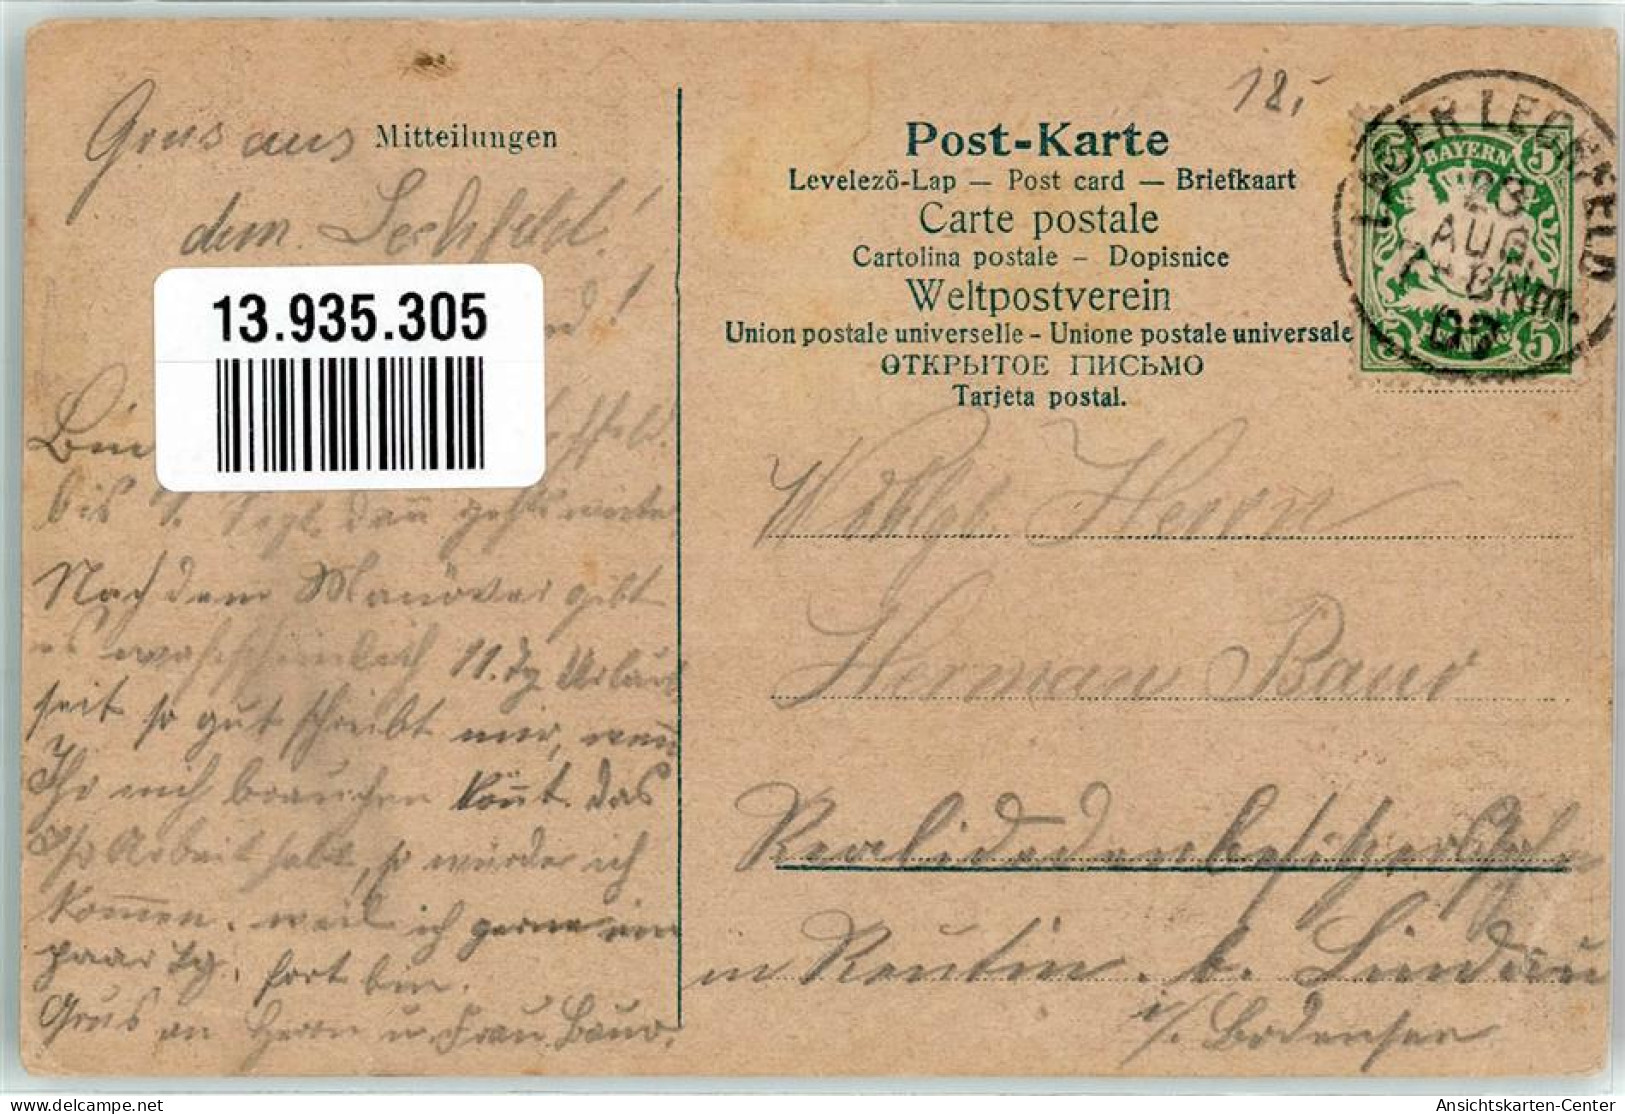 Grus aus Mitteilungen
dem Lechfeld!
13.935.305
d!
Bin
bis 1. Sept. dann geht's weiter
Nach dem Manöver gibt
es wahrscheinlich 11. Tg Urlaub
seit so gut schreibt mir, wenn
Ihr mich brauchen könnt. das
Ihr Arbeit habt, so würde ich
kommen. weil ich gerne ein
paar Tg. fort bin.
Grus an Herrn u. Frau Baur.
18,-
Post-Karte
Levelezö-Lap — Post card — Briefkaart
Carte postale
Cartolina postale – Dopisnice
Weltpostverein
Union postale universelle - Unione postale universale
ОТКРЫТОЕ ПИСЬМО
Tarjeta postal.
LAGER LECHFELD
23
AUG
7-8 Nm.
BAYERN
5 5
5 5
Wohlgb. Herrn
Hermann Baur
in Reutin. b. Lindau
i/. Bodensee
delcampe.net
Ansichtskarten-Center